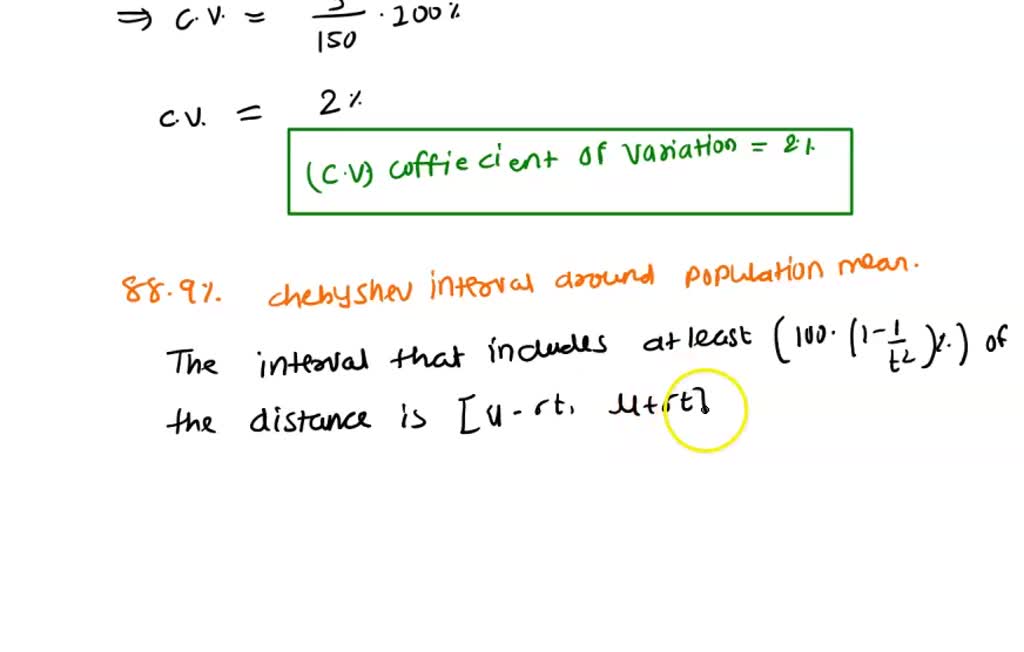 ⇒ C.V. = 3/150 · 100%
C.V. = 2%
(C.V) coffiecient of variation = 2%
88.9% chebyshev interval around population mean.
The interval that includes at least (100·(1-1/t²)%) of
the distance is [μ-σt, μ+σt]